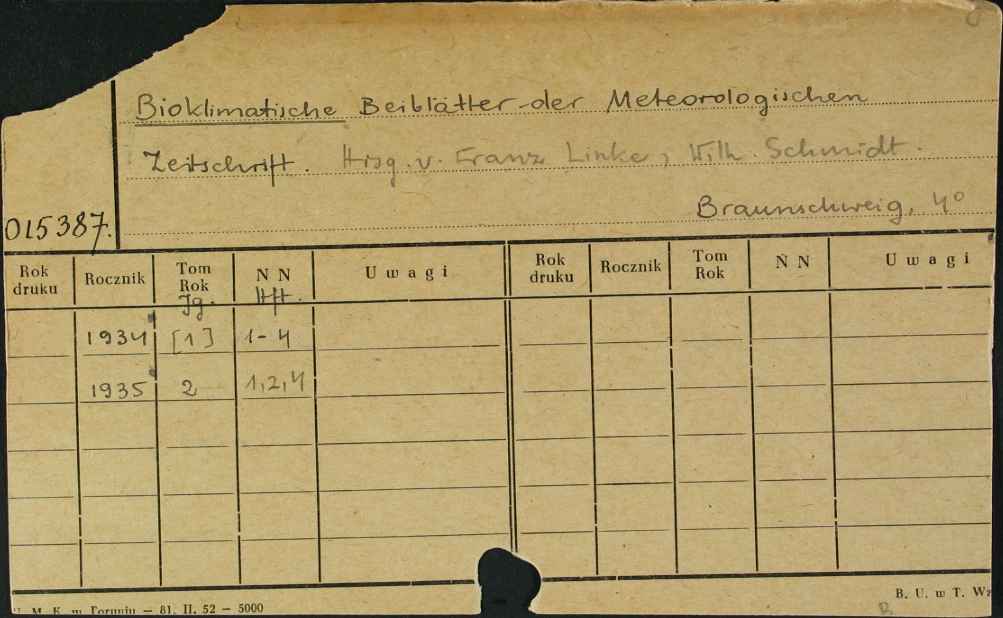 Bioklimatische Beiblätter der Meteorologischen
Zeitschrift. Hrsg. v. Franz Linke, Wilh. Schmidt.
Braunschweig, 4°
015387.
Rok druku Rocznik Tom Rok N N U w a g i Rok druku Rocznik Tom Rok N N U w a g i
Jg. Hft.
1934 [1] 1-4
1935 2 1,2,4
M. K. w Toruniu — 81. II. 52 — 5000
B. U. w T. Wz
B.